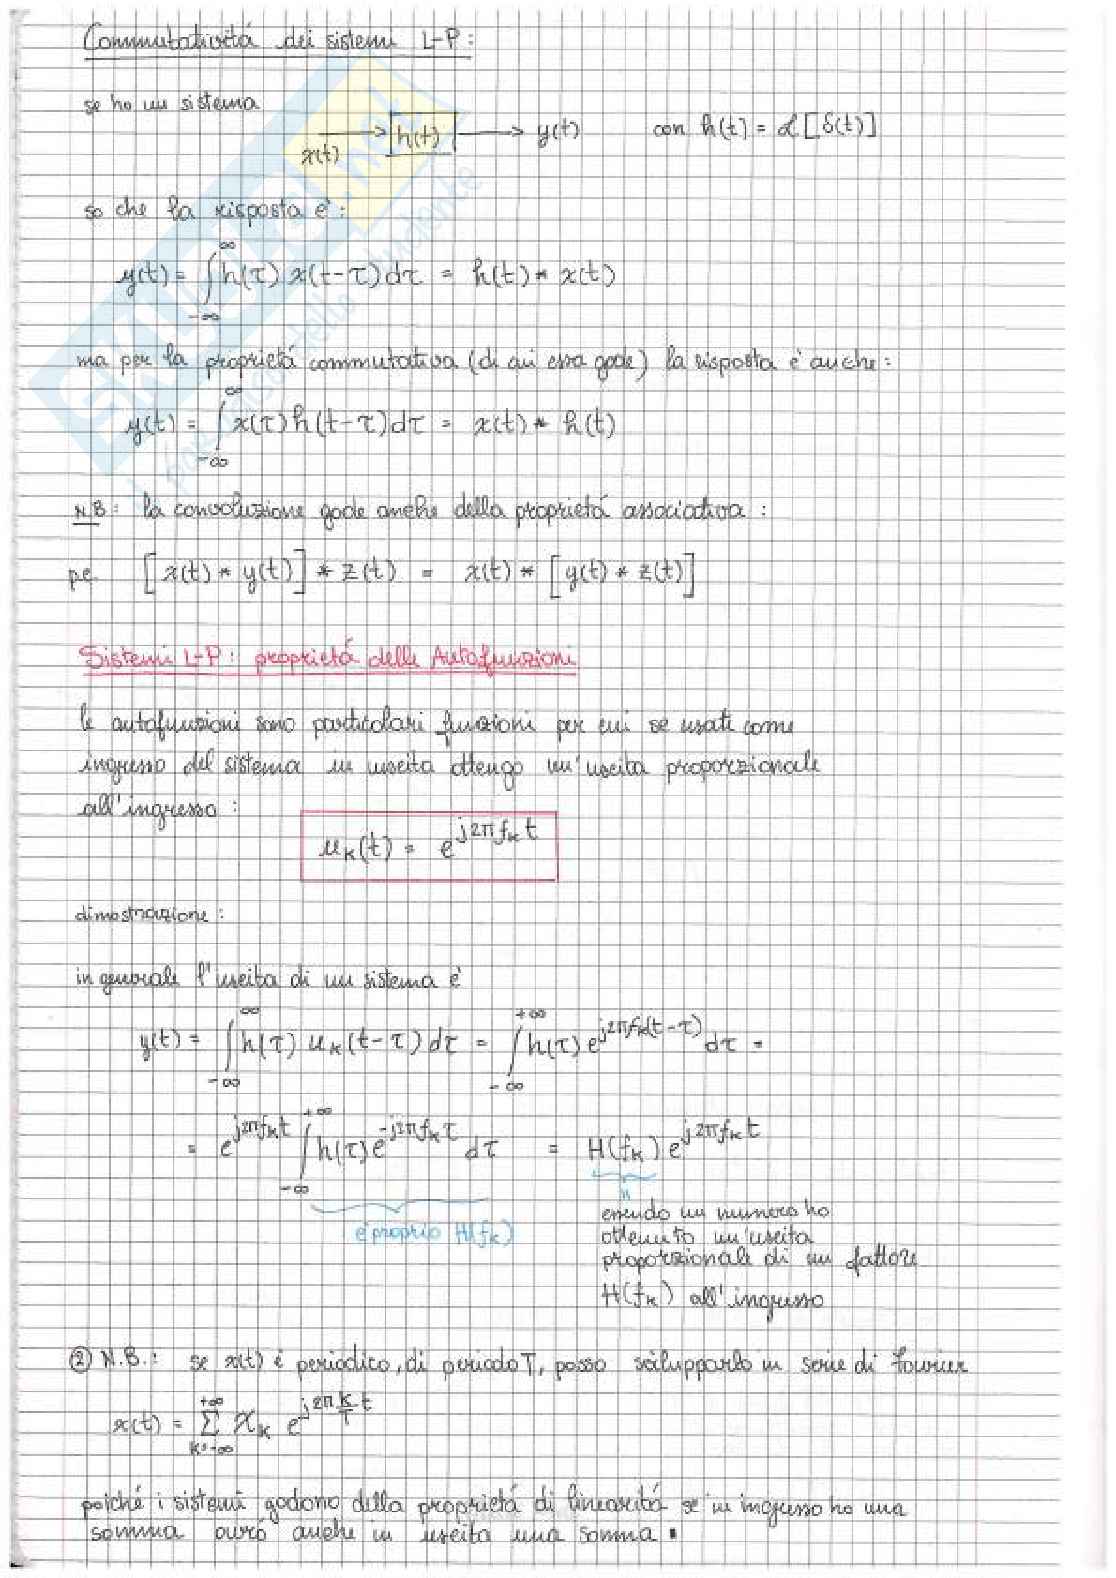 Commutatività dei sistemi L-P:
se ho un sistema
x(t) → h(t) → y(t) con h(t) = ℒ[δ(t)]
so che la risposta è:
y(t) = ∫_{-∞}^{∞} h(τ) x(t-τ)dτ = h(t) * x(t)
ma per la proprietà commutativa (di cui essa gode) la risposta è anche:
y(t) = ∫_{-∞}^{∞} x(τ)h(t-τ)dτ = x(t) * h(t)
N.B: la convoluzione gode anche della proprietà associativa:
p.e. [x(t) * y(t)] * z(t) = x(t) * [y(t) * z(t)]
Sistemi L-P: proprietà delle Autofunzioni
le autofunzioni sono particolari funzioni per cui se usate come
ingresso del sistema in uscita ottengo un'uscita proporzionale
all'ingresso:
u_k(t) = e^{j2πf_k t}
dimostrazione:
in generale l'uscita di un sistema è
y(t) = ∫_{-∞}^{∞} h(τ) u_k(t-τ) dτ = ∫_{-∞}^{+∞} h(τ) e^{j2πf_k(t-τ)} dτ =
= e^{j2πf_k t} ∫_{-∞}^{+∞} h(τ) e^{-j2πf_k τ} dτ = H(f_k) e^{j2πf_k t}
è proprio H(f_k)
essendo un numero ho
ottenuto un'uscita
proporzionale di un fattore
H(f_k) all'ingresso
② N.B.: se x(t) è periodico, di periodo T, posso svilupparlo in serie di Fourier
x(t) = Σ_{k=-∞}^{+∞} X_k e^{j2π k/T t}
poiché i sistemi godono della proprietà di linearità se in ingresso ho una
somma avrò anche in uscita una somma.
SKUOLA.net